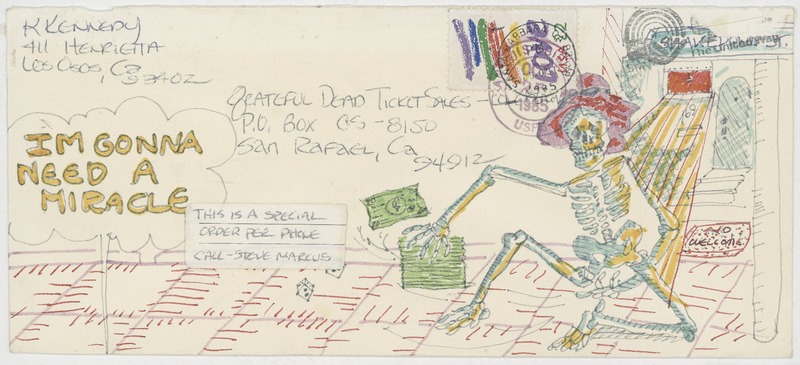 K KENNEDY
411 HENRIETTA
LOS OSOS, Ca
93402
GRATEFUL DEAD TICKET SALES -
P.O. BOX CS-8150
SAN RAFAEL, Ca
94912
I'M GONNA
NEED A
MIRACLE
THIS IS A SPECIAL
ORDER PER PHONE
CALL - STEVE MARCUS
SANTA BARBARA CA
1985
LOVE
USA 22
1985
ST.
WELCOME